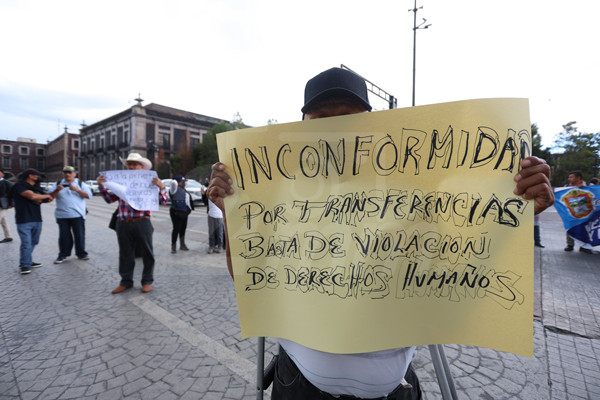 INCONFORMIDAD
POR TRANSFERENCIAS
BAJA DE VIOLACION
DE DERECHOS HUMANOS